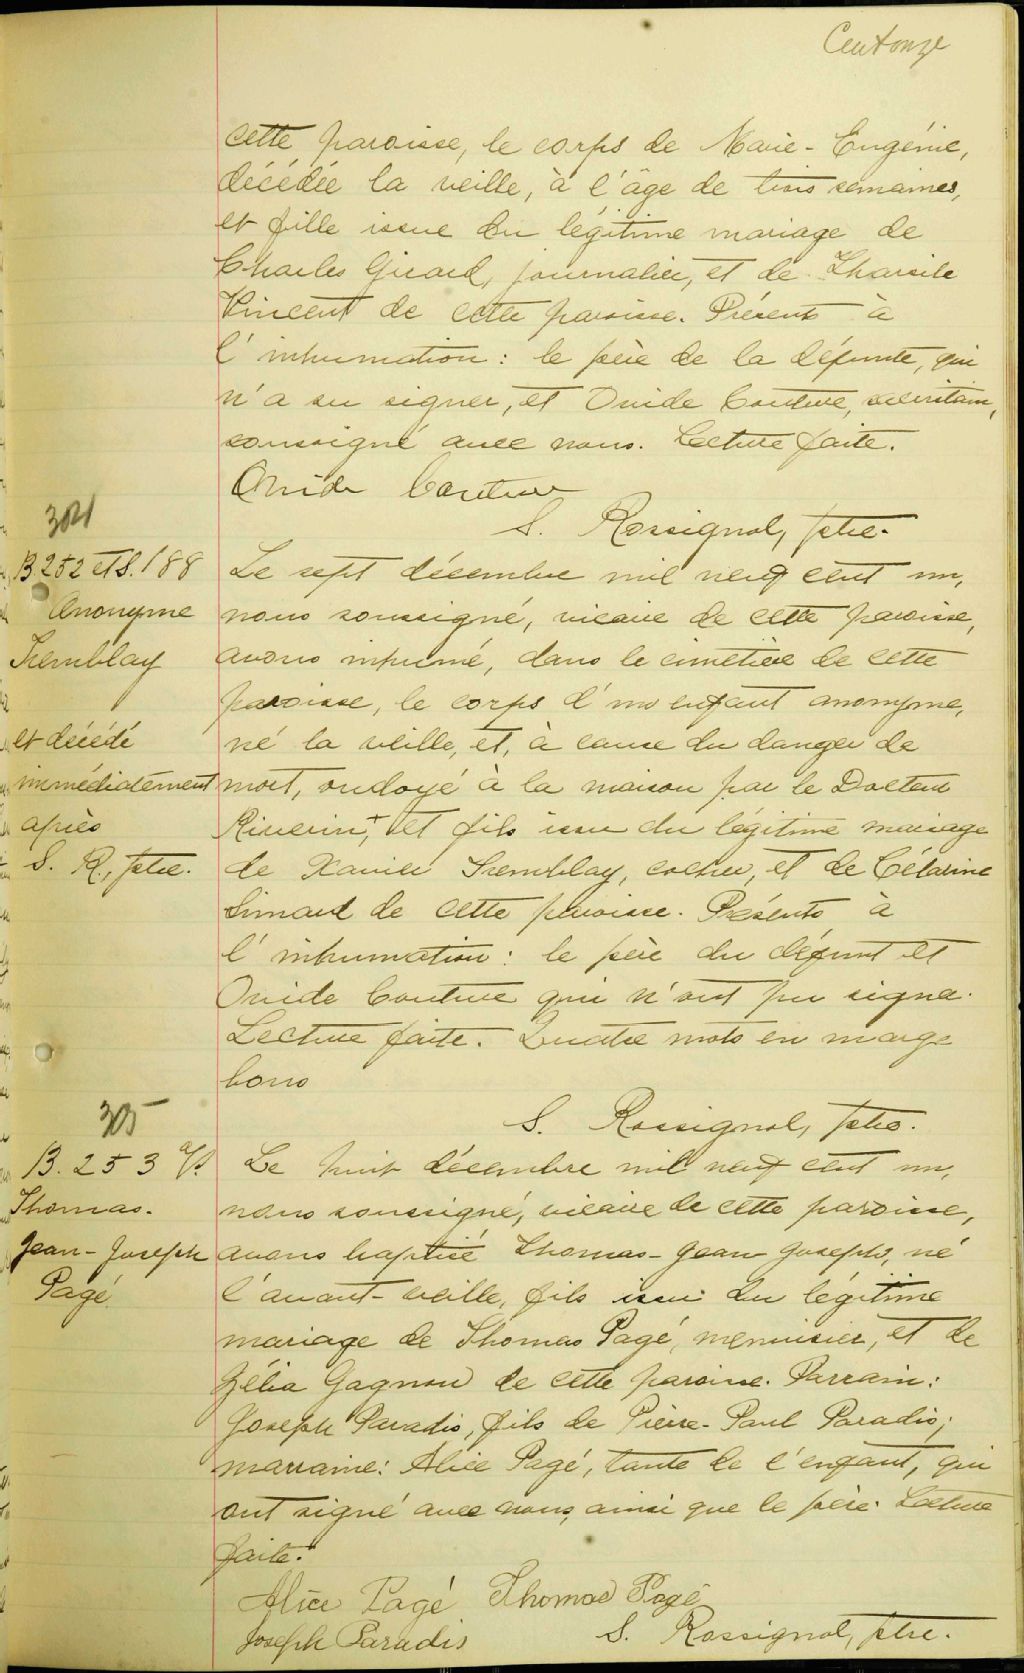 Cent onze
cette paroisse, le corps de Marie-Eugénie,
décédée la veille, à l'âge de trois semaines,
et fille issue du légitime mariage de
Charles Girard, journalier, et de Tharsile
Vincent de cette paroisse. Présents à
l'inhumation: le père de la défunte, qui
n'a su signer, et Ovide Couture, sacristain,
soussigné avec nous. Lecture faite.
Ovide Couture
S. Rossignol, ptre.
304
B 252 et S. 188
Anonyme
Tremblay
et décédé
immédiatement
après
S. R., ptre.
Le sept décembre mil neuf cent un,
nous soussigné, vicaire de cette paroisse,
avons inhumé, dans le cimetière de cette
paroisse, le corps d'un enfant anonyme,
né la veille, et, à cause du danger de
mort, ondoyé à la maison par le Docteur
Riverin,+ et fils issu du légitime mariage
de Xavier Tremblay, cocher, et de Célarine
Simard de cette paroisse. Présents à
l'inhumation: le père du défunt et
Ovide Couture qui n'ont pu signer.
Lecture faite. Quatre mots en marge
bons
S. Rossignol, ptre.
305
B. 253
Thomas-
Jean-Joseph
Pagé
Le huit décembre mil neuf cent un,
nous soussigné, vicaire de cette paroisse,
avons baptisé Thomas-Jean Joseph, né
l'avant-veille, fils issu du légitime
mariage de Thomas Pagé, menuisier, et de
Zélia Gagnon de cette paroisse. Parrain:
Joseph Paradis, fils de Pierre-Paul Paradis;
marraine: Alice Pagé, tante de l'enfant, qui
ont signé avec nous, ainsi que le père. Lecture
faite.
Alice Pagé Thomas Pagé
Joseph Paradis S. Rossignol, ptre.